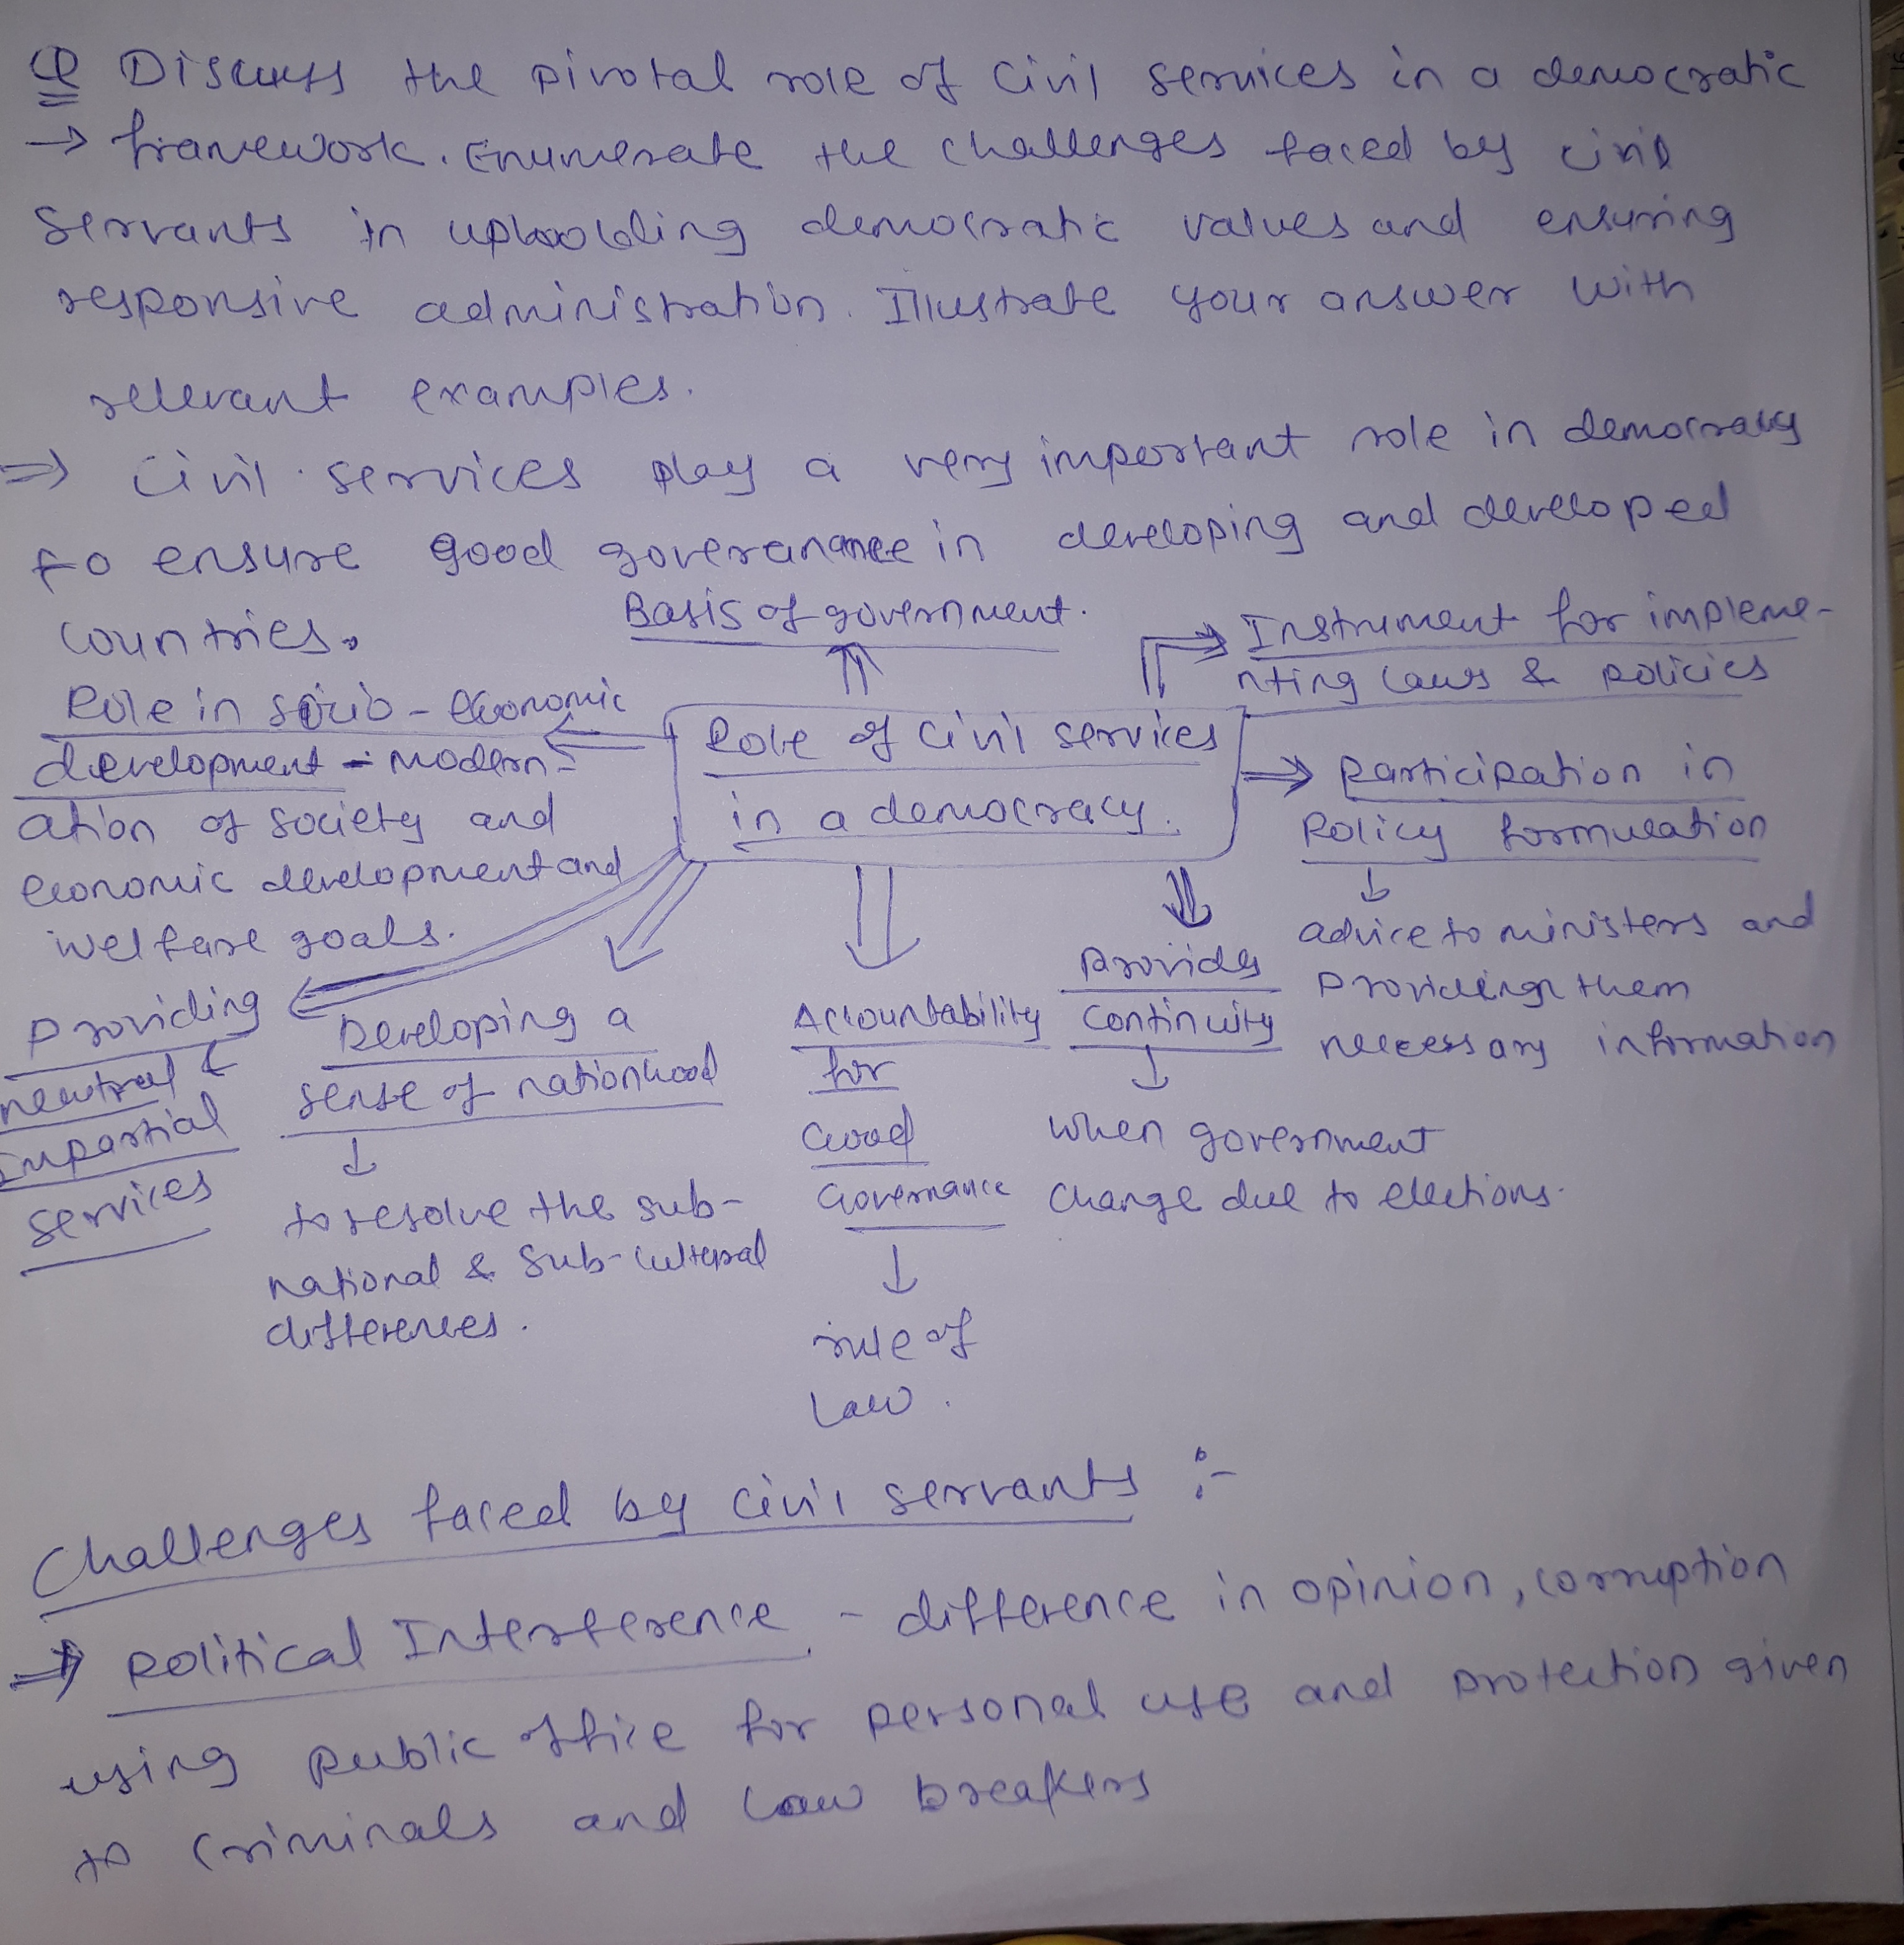 Q Discuss the pivotal role of civil services in a democratic
→ framework. Enumerate the challenges faced by civil
servants in upholding democratic values and ensuring
responsive administration. Illustrate your answer with
relevant examples.
⇒ Civil services play a very important role in democracy
to ensure good goverance in developing and developed
countries.
Basis of government.
Instrument for impleme-
nting laws & policies
Role in socio-economic
development - modern-
ation of society and
economic development and
welfare goals.
Role of civil services
in a democracy.
Participation in
Policy formulation
↓
advice to ministers and
providing them
necessary information
Providing
neutral &
impartial
services
Developing a
sense of nationhood
↓
to resolve the sub-
national & sub-cultural
differences.
Accountability
for
Good
Governance
↓
rule of
law.
Provides
continuity
↓
when government
change due to elections.
Challenges faced by civil servants :-
⇒ Political Interference - difference in opinion, corruption
using public office for personal use and protection given
to criminals and law breakers